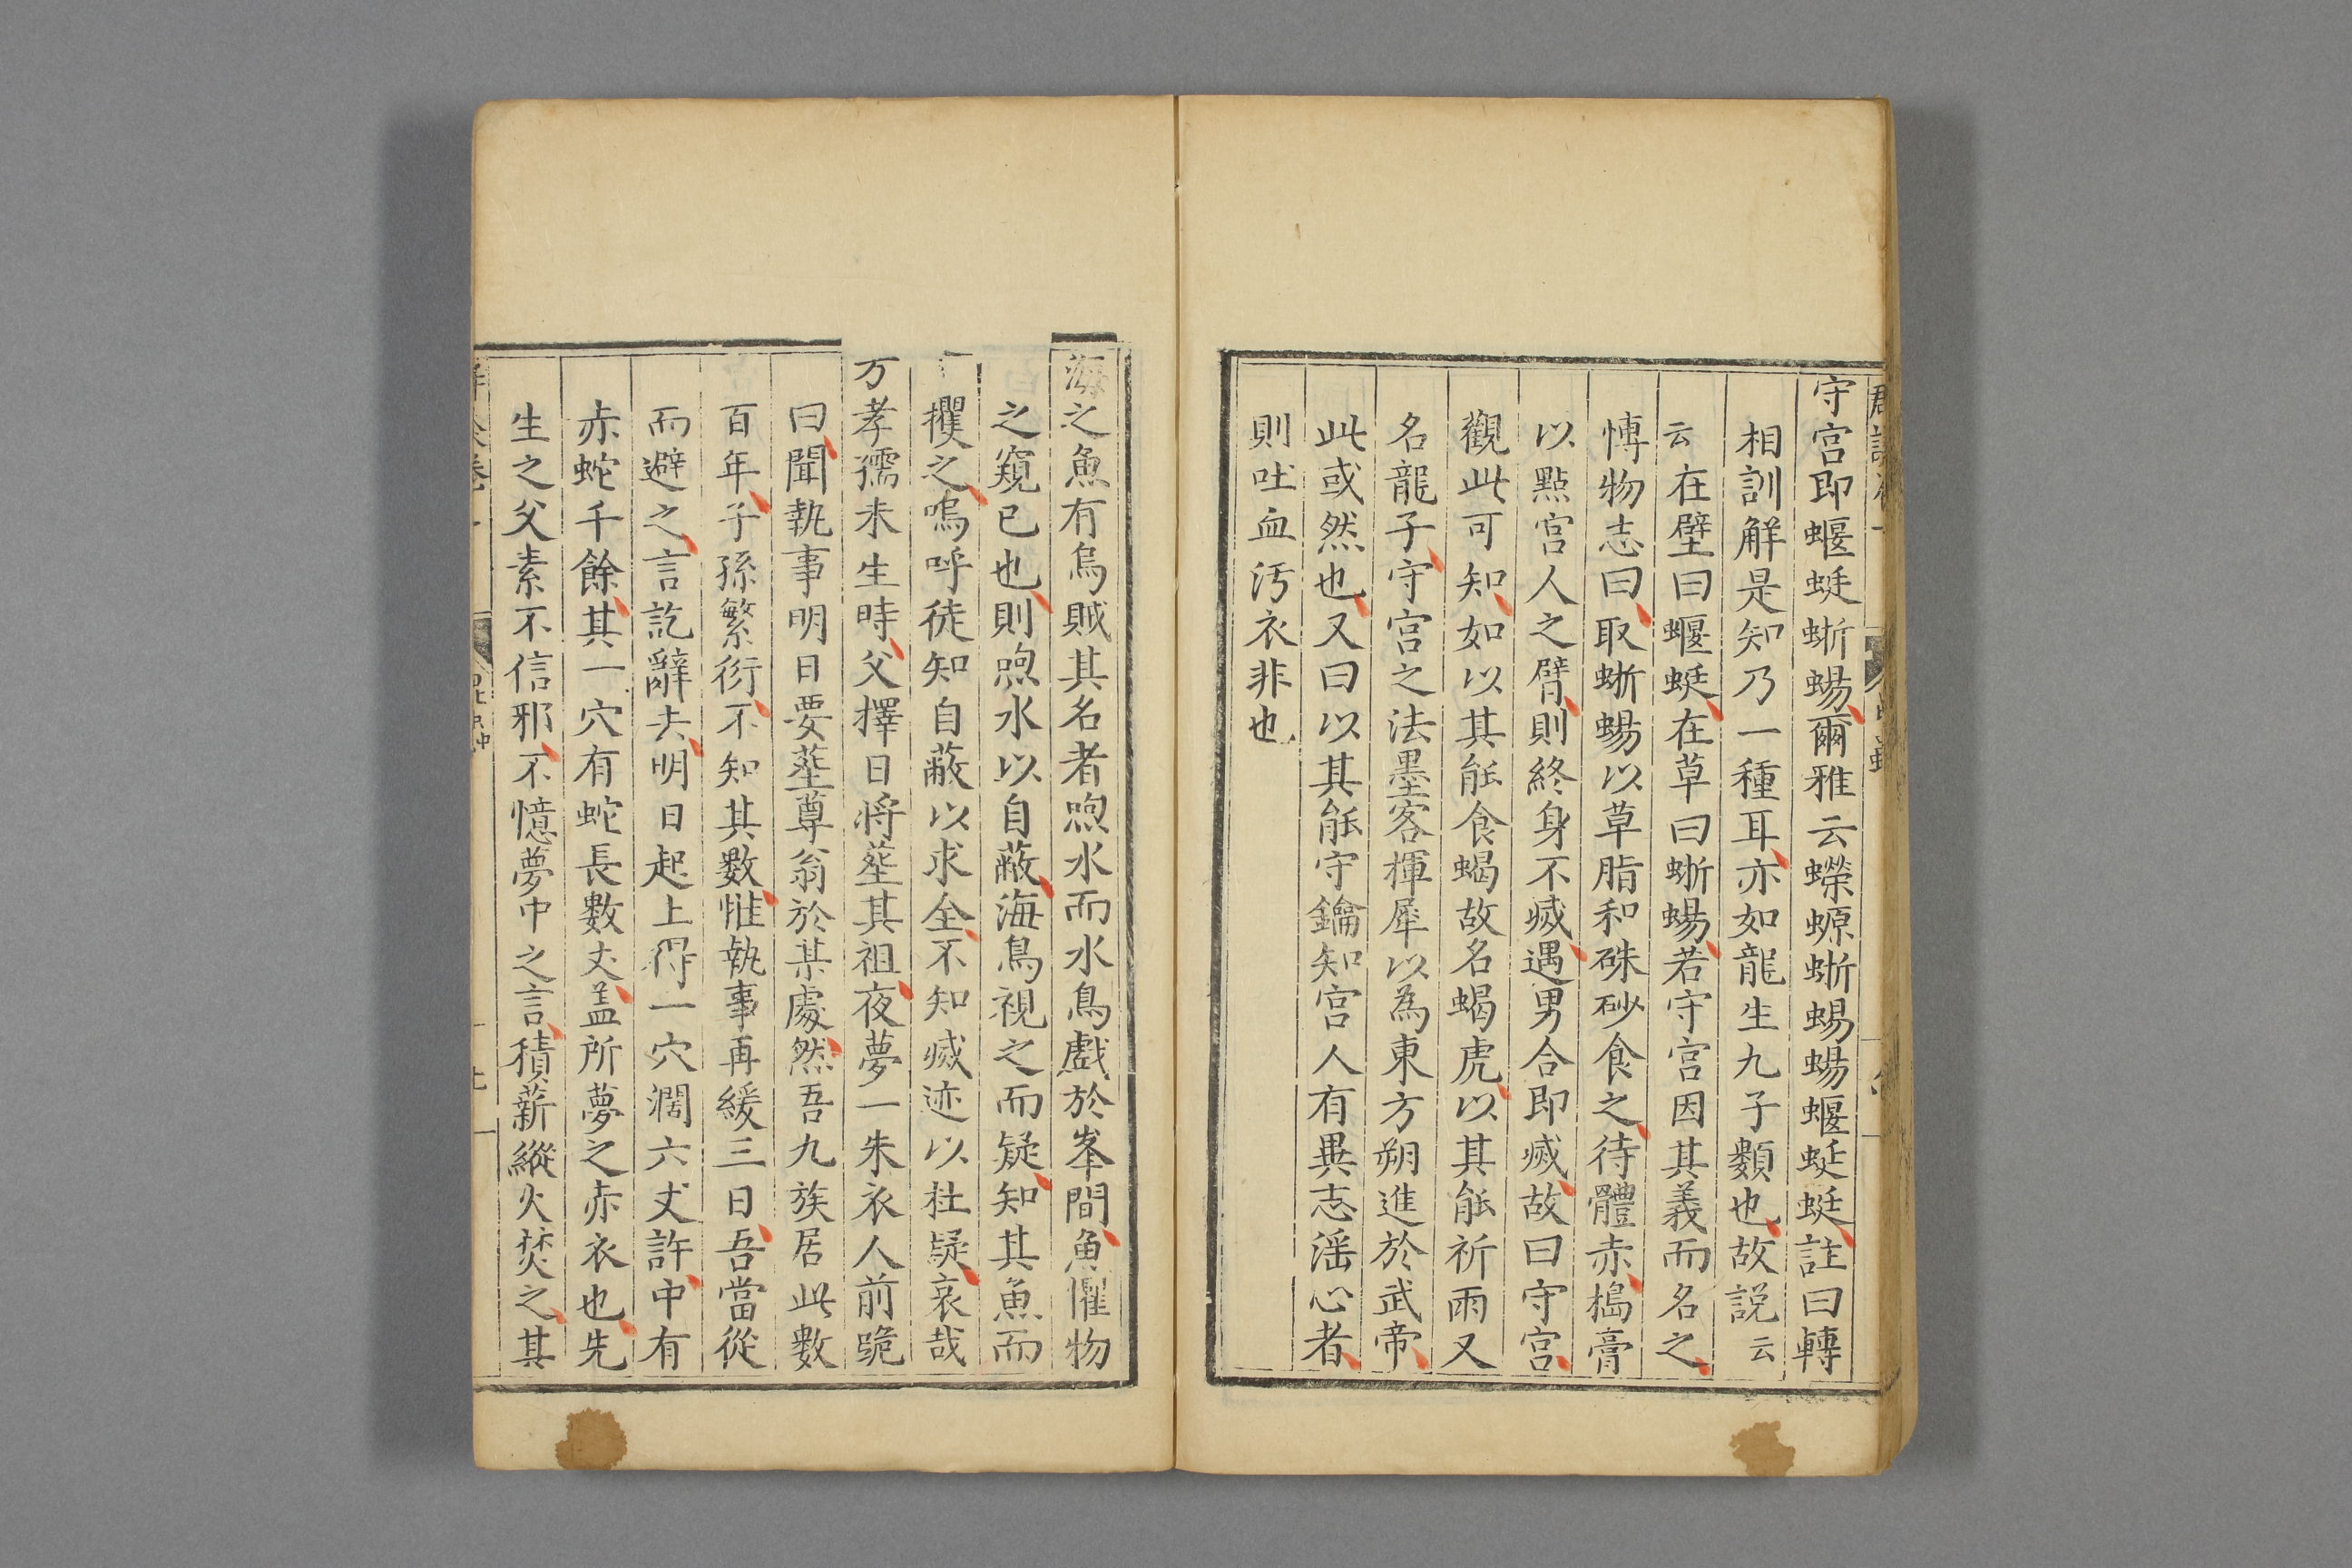 守宮即蝘蜓蜥蜴爾雅云蠑螈蜥蜴蜴蝘蜓蜓註曰轉
相訓解是知乃一種耳亦如龍生九子數也故説云
云在壁曰蝘蜓在草曰蜥蜴若守宮因其義而名之
愽物志曰取蜥蜴以草脂和硃砂食之待體赤搗膏
以㸃宮人之臂則終身不㓕遇男合即㓕故曰守宮
觀此可知如以其能食蝎故名蝎虎以其能祈雨又
名龍子守宮之法墨客揮犀以為東方朔進於武帝
此或然也又曰以其能守鑰知宮人有異志滛心者
則吐血汚衣非也
海之魚有烏賊其名者呴水而水鳥戲於峯間魚懼物
之窺已也則呴水以自蔽海鳥視之而疑知其魚而
攫之嗚呼徒知自蔽以求全不知㓕迹以杜疑哀哉
方孝孺未生時父擇日将塟其祖夜夢一朱衣人前跪
曰聞執事明日要塟尊翁於某處然吾九族居此數
百年子孫繁衍不知其數惟執事再緩三日吾當從
而避之言訖辭去明日起上得一穴濶六丈許中有
赤蛇千餘其一穴有蛇長數丈盖所夢之赤衣也先
生之父素不信邪不憶夢中之言積薪縱火焚之其